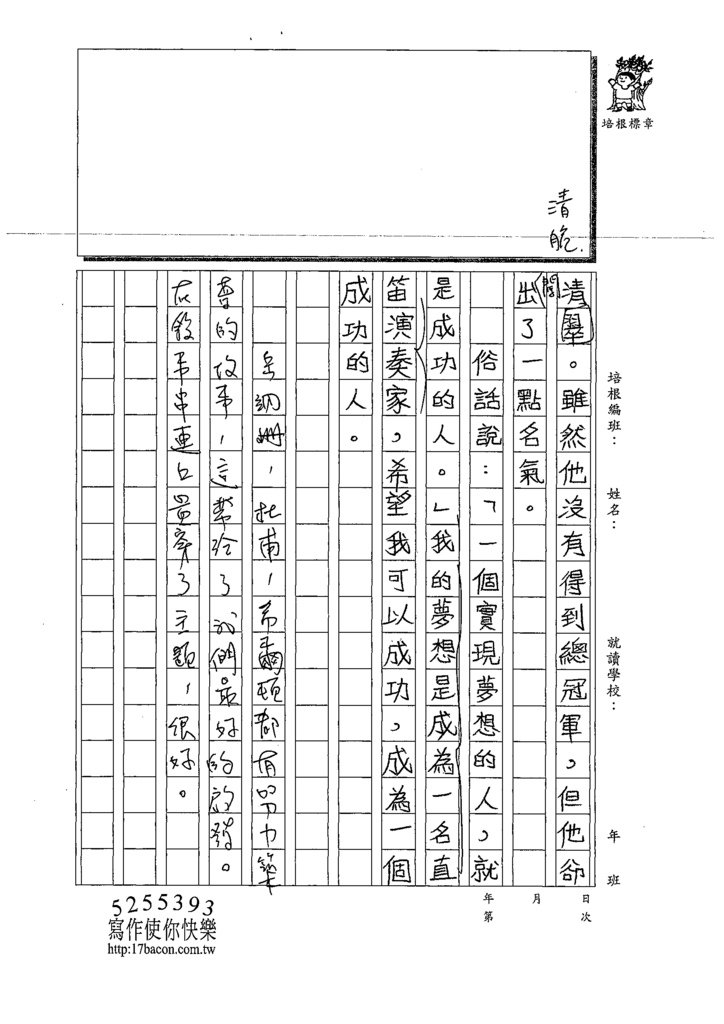 培根標章
清
脆.
培根編班： 姓名： 就讀學校： 年 班
清。雖然他沒有得到總冠軍，但他卻
闖
出了一點名氣。
俗話說：「一個實現夢想的人，就
是成功的人。」我的夢想是成為一名直
笛演奏家，希望我可以成功，成為一個
成功的人。
岳納珊、杜甫、希爾頓都有努力築
的故事，這帶給了我們最好的啟發。
在敘事串連口主題，很好。
年 月 日
第 次
5255393
寫作使你快樂
http:17bacon.com.tw